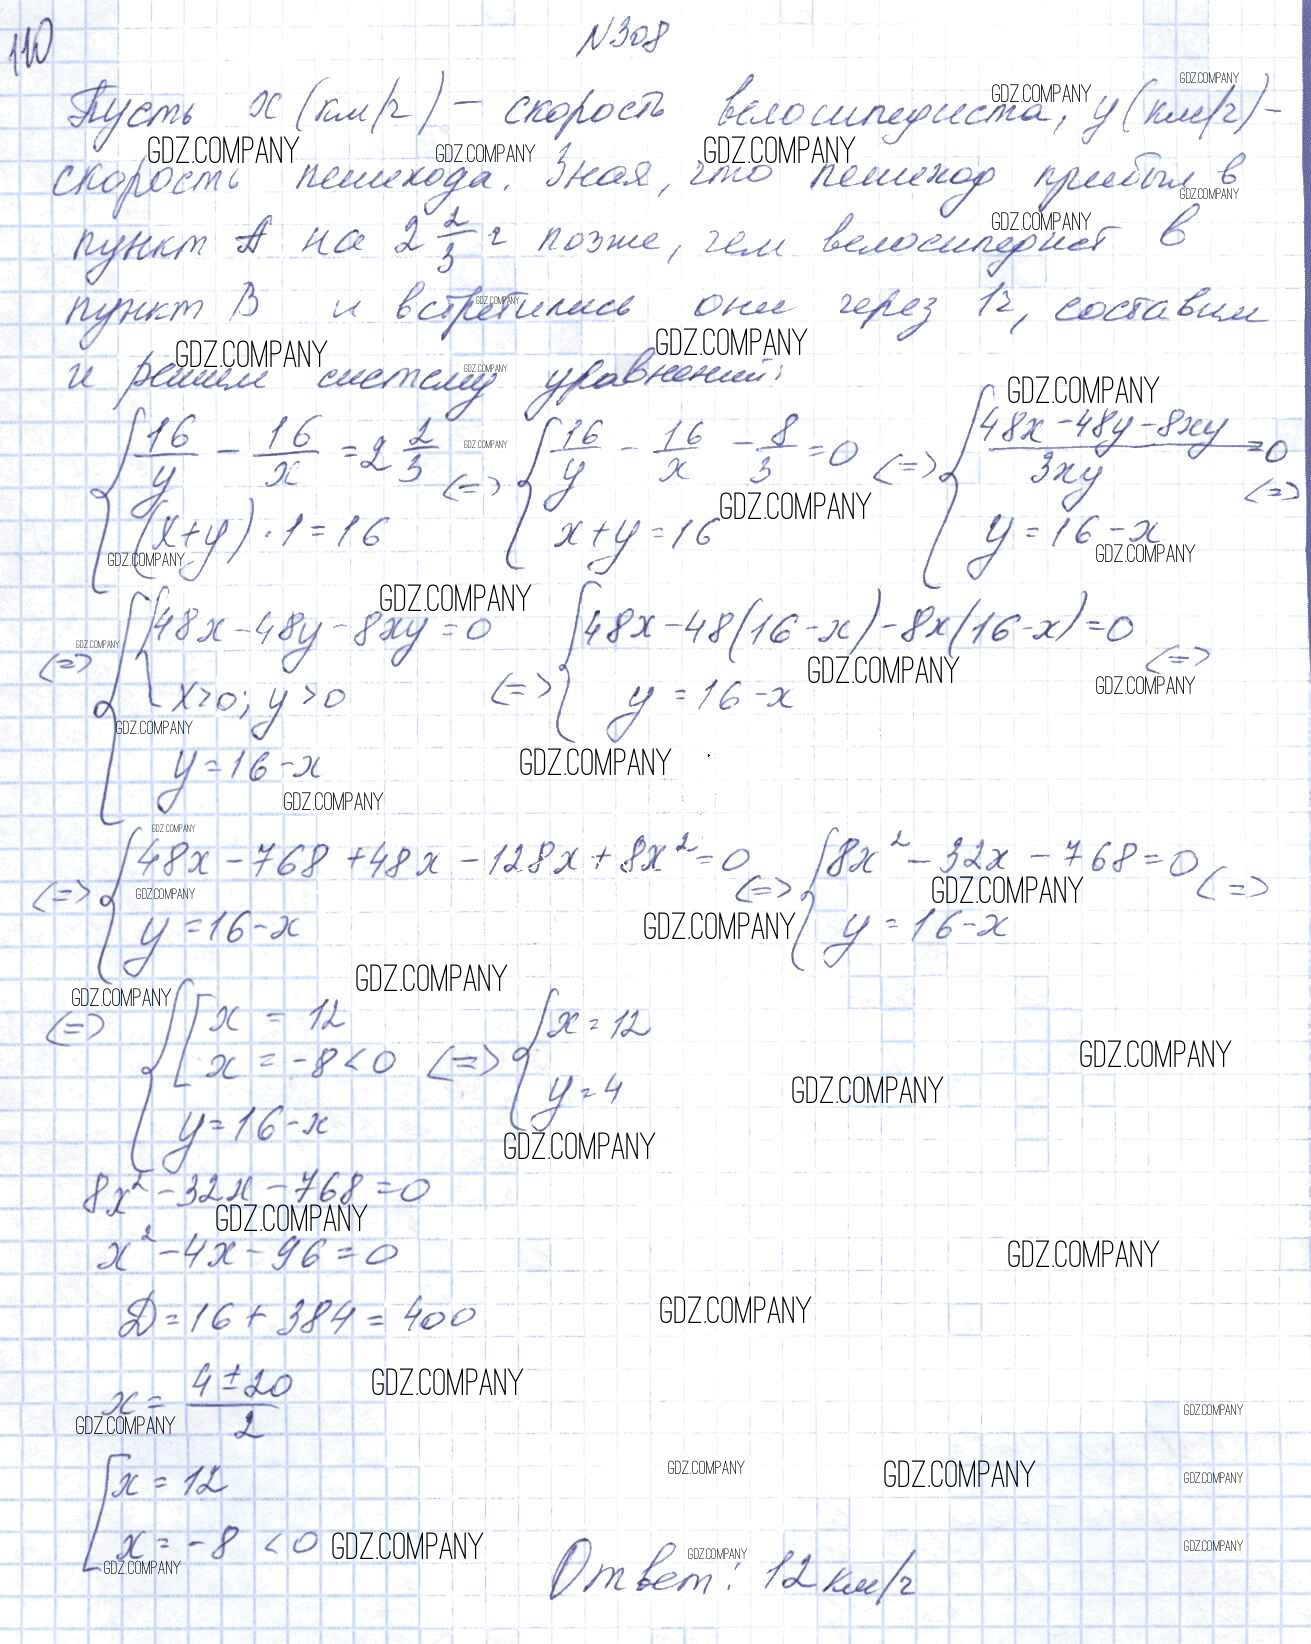 110
N308
Пусть x (км/ч) – скорость велосипедиста, y (км/ч) –
скорость пешехода. Зная, что пешеход прибыл в
пункт А на 2 2/3 ч позже, чем велосипедист в
пункт В и встретились они через 1ч, составим
и решим систему уравнений:
{ 16/y - 16/x = 2 2/3 (=) { 16/y - 16/x - 8/3 = 0 (=) { (48x - 48y - 8xy)/3xy = 0 (=)
(x+y)·1 = 16 x+y = 16 y = 16 - x
(=) { { 48x - 48y - 8xy = 0 (=) { 48x - 48(16-x) - 8x(16-x) = 0 (=)
x>0; y>0 y = 16 - x
y = 16 - x
(=) { 48x - 768 + 48x - 128x + 8x² = 0 (=) { 8x² - 32x - 768 = 0 (=)
y = 16 - x y = 16 - x
(=) { [ x = 12 (=) { x = 12
x = -8 < 0 y = 4
y = 16 - x
8x² - 32x - 768 = 0
x² - 4x - 96 = 0
D = 16 + 384 = 400
x = (4 ± 20)/2
[ x = 12
x = -8 < 0
Ответ: 12 км/ч
GDZ.COMPANY